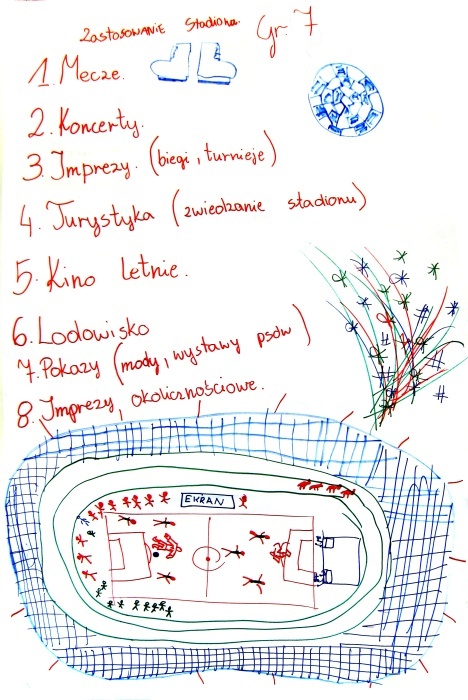 Zastosowanie Stadionu.
Gr. 7
1. Mecze.
2. Koncerty.
3. Imprezy. (biegi, turnieje)
4. Turystyka (zwiedzanie stadionu)
5. Kino letnie.
6. Lodowisko
7. Pokazy (mody, wystawy psów)
8. Imprezy, okolicznościowe.
EKRAN